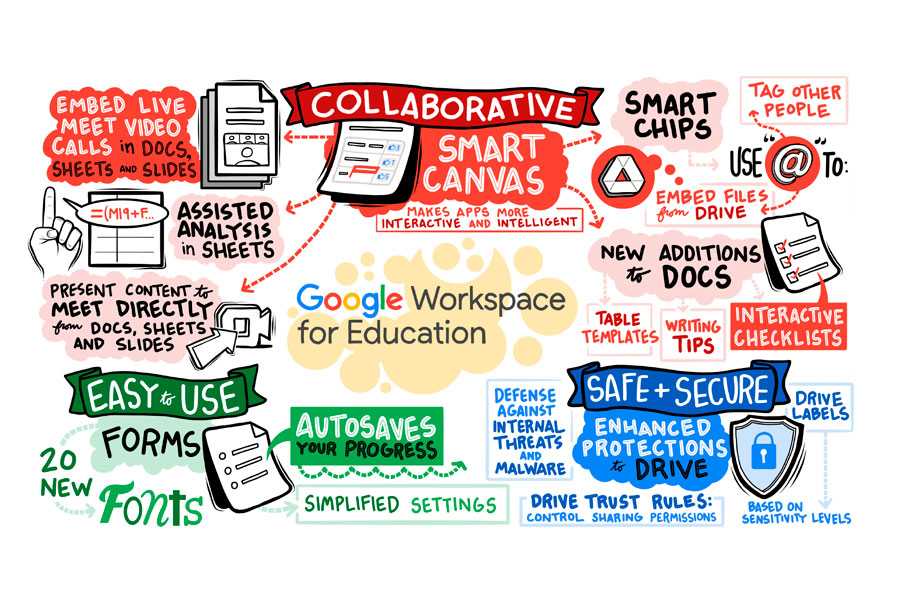 COLLABORATIVE
SMART
CANVAS
MAKES APPS MORE
INTERACTIVE AND INTELLIGENT
EMBED LIVE
MEET VIDEO
CALLS in DOCS,
SHEETS AND SLIDES
=(M19+F...
ASSISTED
ANALYSIS
in SHEETS
PRESENT CONTENT to
MEET DIRECTLY
from DOCS, SHEETS
AND SLIDES
SMART
CHIPS
TAG OTHER
PEOPLE
USE "@" TO:
EMBED FILES
from DRIVE
NEW ADDITIONS
to DOCS
TABLE
TEMPLATES
WRITING
TIPS
INTERACTIVE
CHECKLISTS
Google Workspace
for Education
EASY to USE
FORMS
20
NEW
Fonts
AUTOSAVES
YOUR PROGRESS
SIMPLIFIED SETTINGS
SAFE + SECURE
DEFENSE
AGAINST
INTERNAL
THREATS
AND
MALWARE
ENHANCED
PROTECTIONS
to DRIVE
DRIVE
LABELS
BASED ON
SENSITIVITY LEVELS
DRIVE TRUST RULES:
CONTROL SHARING PERMISSIONS